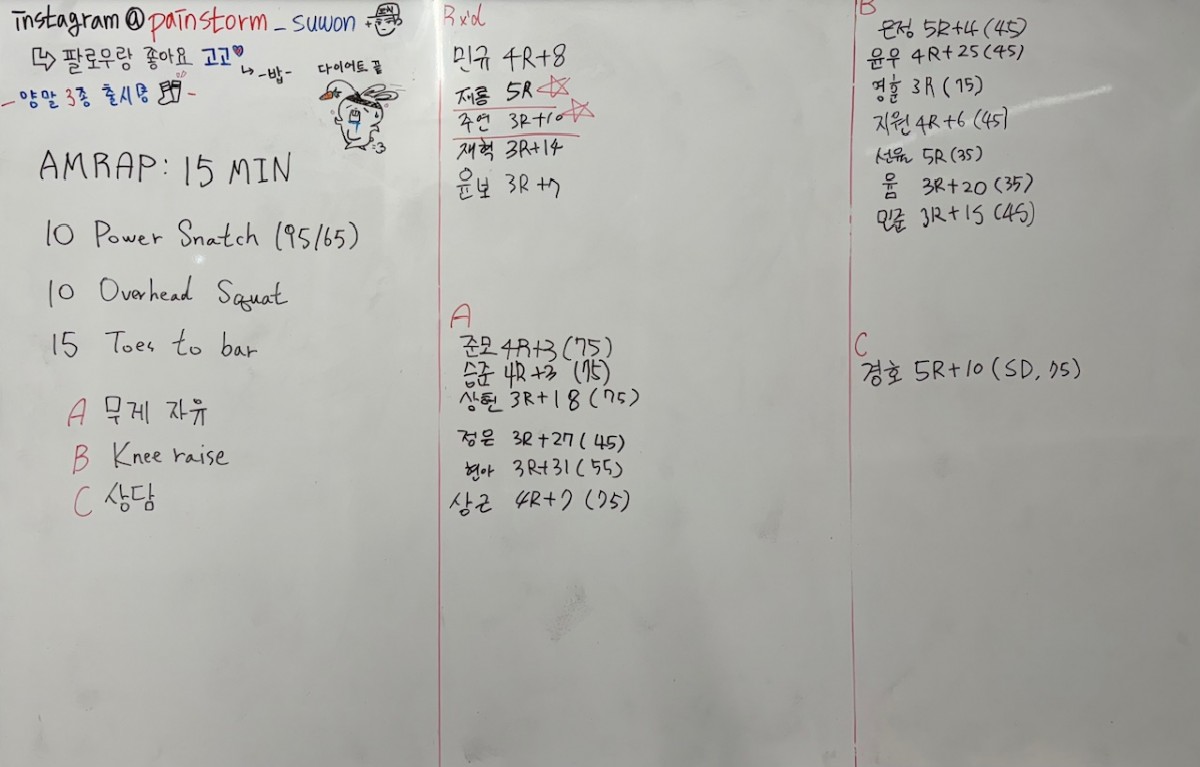 instagram@painstorm_suwon +
↳ 팔로우랑 좋아요 고고♥
↳ -밥-
다이어트 끝
- 양말 3종 출시 중 -
AMRAP: 15 MIN
10 Power Snatch (95/65)
10 Overhead Squat
15 Toes to bar
A 무게 자유
B Knee raise
C 상담
Rx'd
민규 4R+8
재롱 5R ☆
주연 3R+10 ☆
재혁 3R+14
윤보 3R+7
A
준모 4R+3 (75)
승준 4R+3 (75)
상헌 3R+18 (75)
정은 3R+27 (45)
현아 3R+31 (55)
상근 4R+7 (75)
B
은정 5R+4 (45)
윤우 4R+25 (45)
영훈 3R (75)
지원 4R+6 (45)
선유 5R (35)
윰 3R+20 (35)
민준 3R+15 (45)
C
경호 5R+10 (SD, 75)